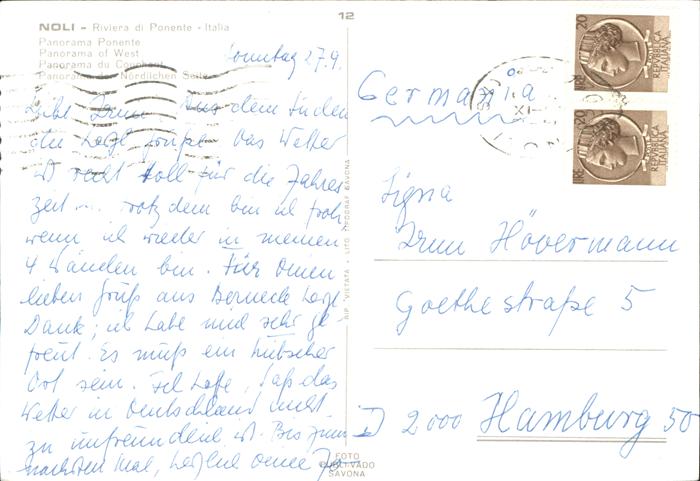 NOLI - Riviera di Ponente - Italia
Panorama Ponente
Panorama of West
Panorama du Couchant
Panorama Nördlichen Seite
12
Sonntag 27.9.
Aus dem Süden
Grüße. Das Wetter
ist recht toll für die Jahres
zeit ... trotzdem bin ich froh
wenn ich wieder in meinen
4 Wänden bin. Für
lieben Gruß aus Berneck
Dank; ich habe mich sehr ge
freut. Es muß ein hübscher
Ort sein. Ich hoffe, daß das
Wetter in Deutschland nicht
zu unfreundlich ist. Bis zum
nächsten Mal, herzlich
RIP. VIETATA - LITO TIPOGRAF SAVONA
FOTO
PUBLIVADO
SAVONA
Germania
Signa
Hövermann
Goethestraße 5
D 2000 Hamburg 50
20
LIRE
REPVBBLICA
ITALIANA
20
LIRE
REPVBBLICA
ITALIANA